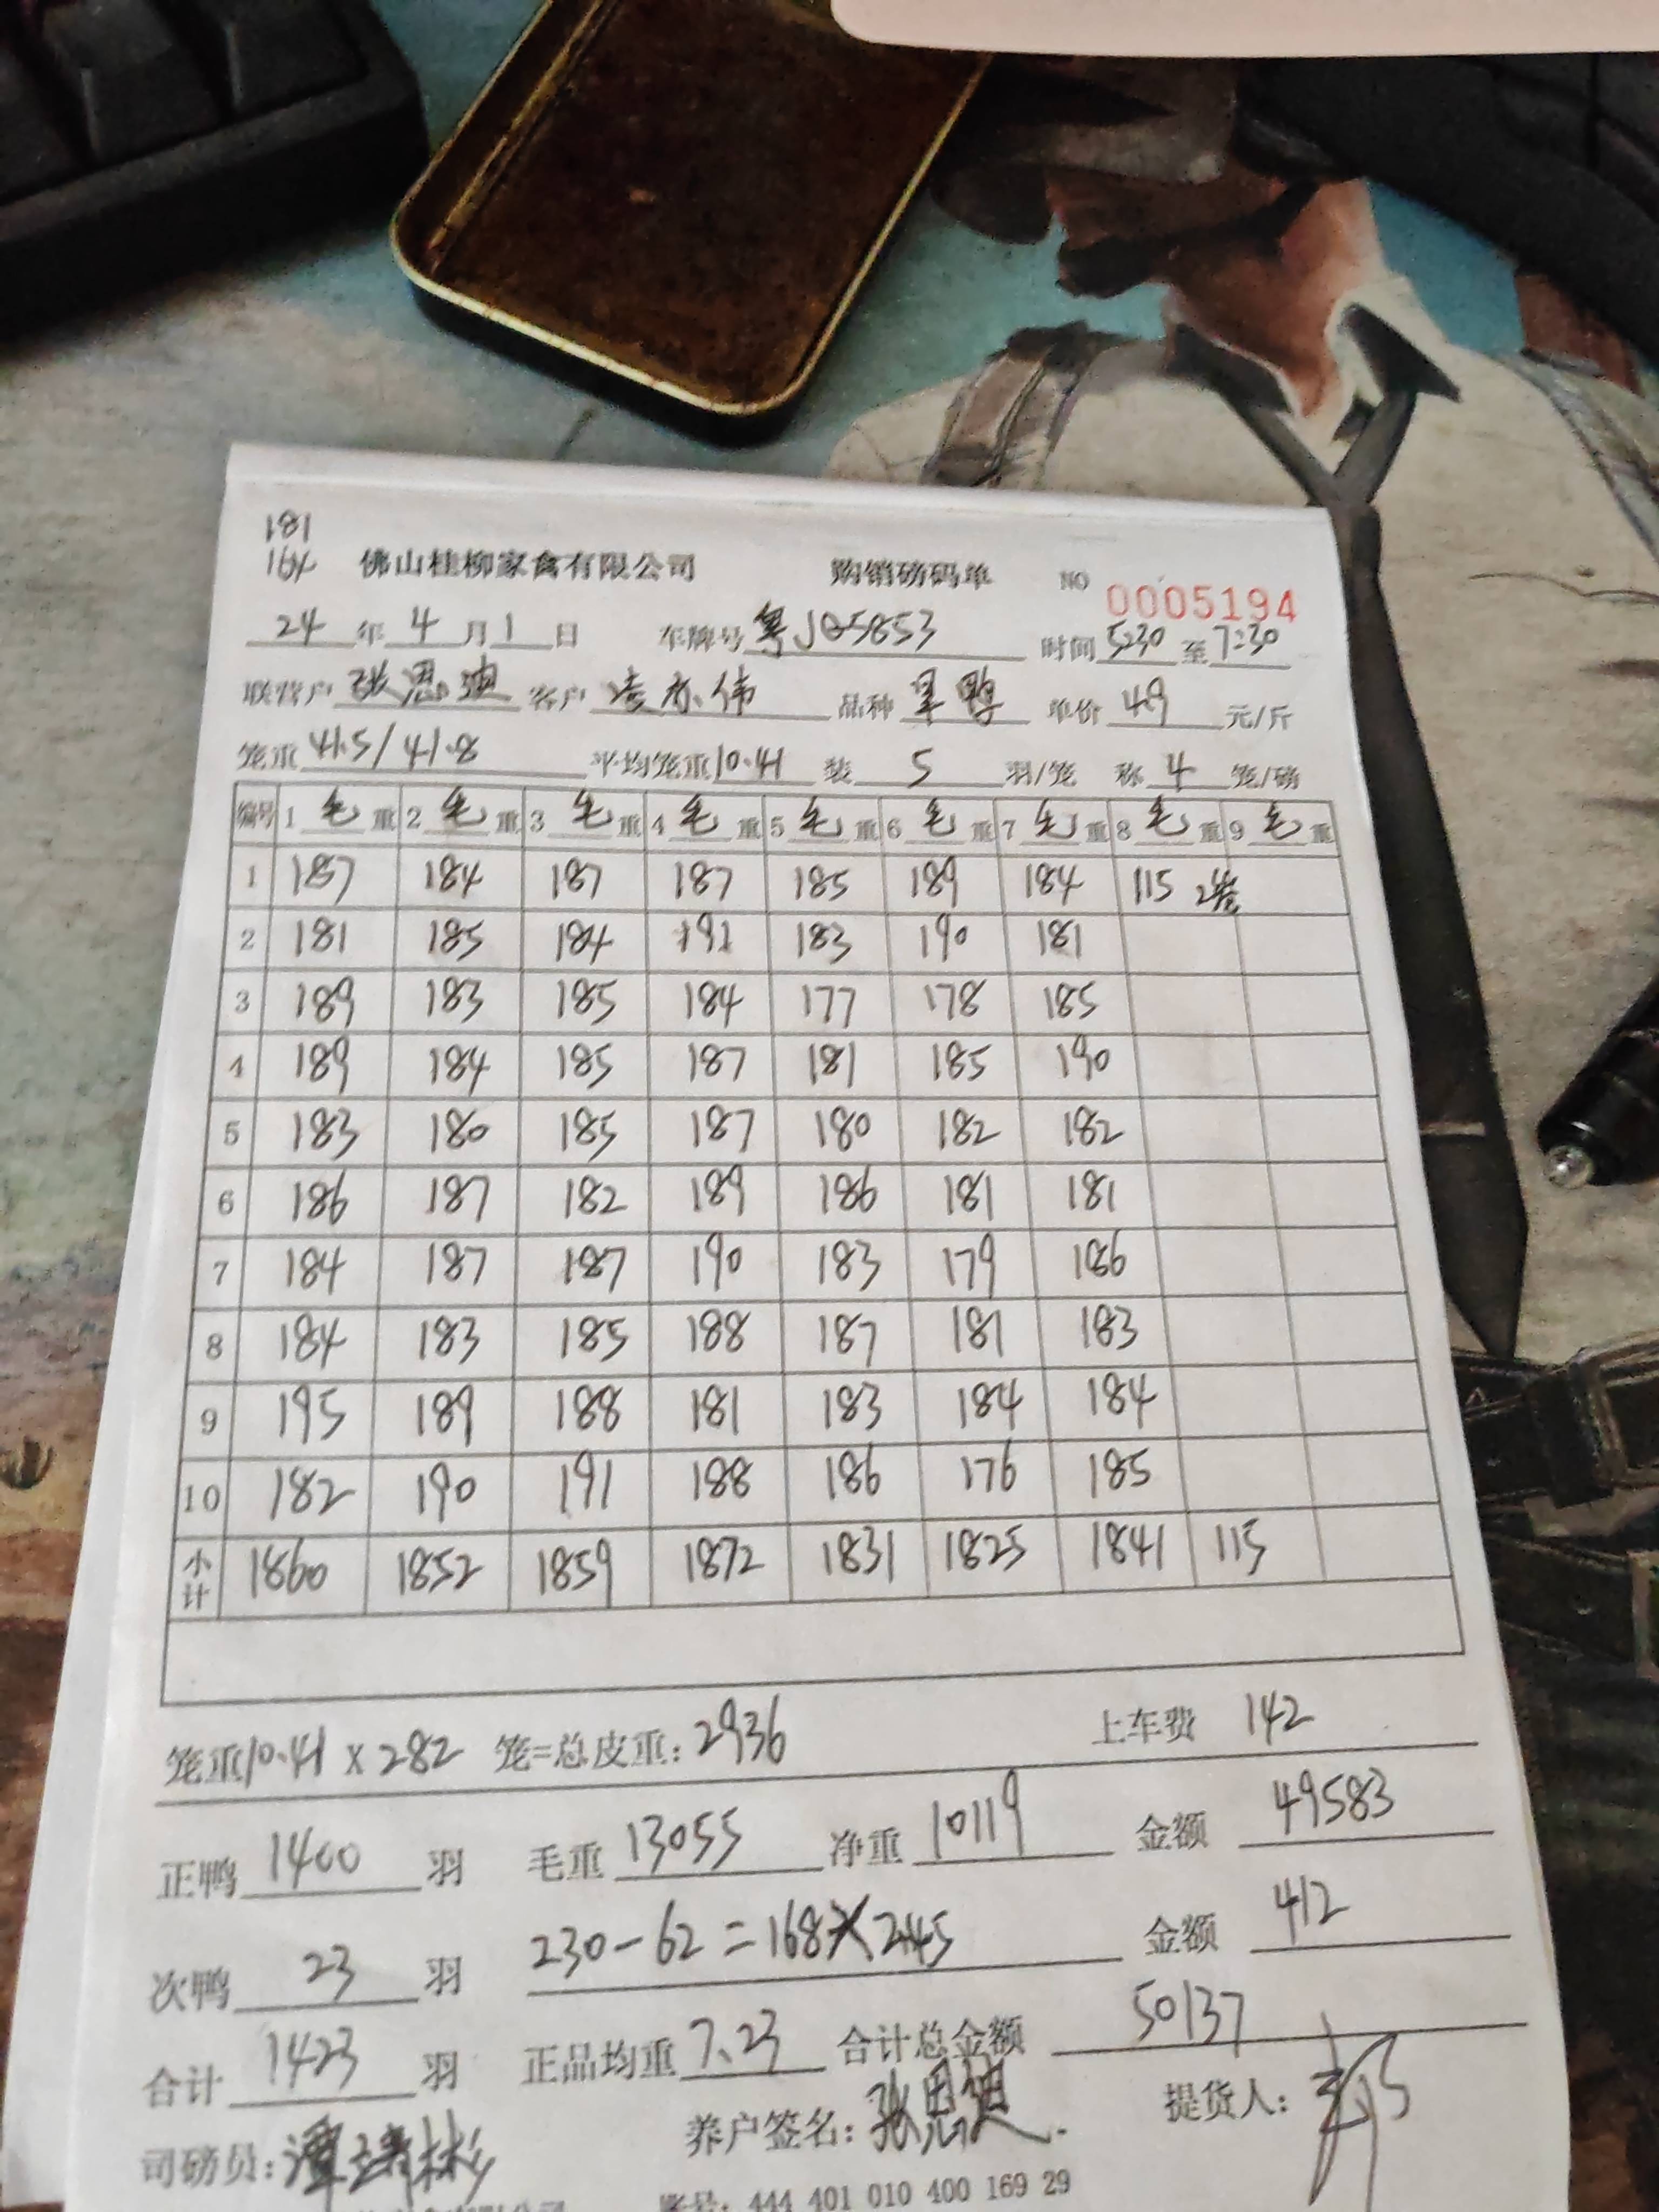 181
164 佛山桂柳家禽有限公司 购销磅码单 NO 0005194
24 年 4 月 1 日 车牌号 粤JQ5853 时间 5:30 至 7:30
联营户 张思迪 客户 凌亦伟 品种 旱鸭 单价 4.9 元/斤
笼重 41.5/41.8 平均笼重 10.41 装 5 羽/笼 称 4 笼/磅
编号 1 毛 重 2 毛 重 3 毛 重 4 毛 重 5 毛 重 6 毛 重 7 毛 重 8 毛 重 9 毛 重
1 187 184 187 187 185 189 184 115 2笼
2 181 185 184 191 183 190 181
3 189 183 185 184 177 178 185
4 189 184 185 187 181 185 190
5 183 180 185 187 180 182 182
6 186 187 182 189 186 181 181
7 184 187 187 190 183 179 186
8 184 183 185 188 187 181 183
9 195 189 188 181 183 184 184
10 182 190 191 188 186 176 185
小计 1860 1852 1859 1872 1831 1825 1841 115
笼重10.41 x 282 笼=总皮重: 2936 上车费 142
正鸭 1400 羽 毛重 13055 净重 10119 金额 49583
次鸭 23 羽 230-62=168X2.45 金额 412
合计 1423 羽 正品均重 7.23 合计总金额 50137
司磅员: 养户签名: 张思迪 提货人:
账号: 444 401 010 400 169 29